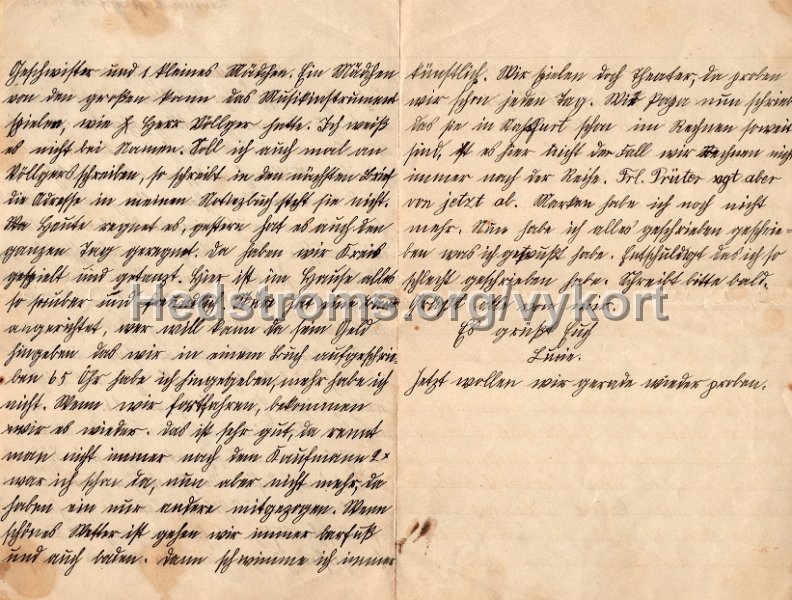 Geschwister und 1 kleines Mädchen. Ein Mädchen
von den großen kann das Musikinstrument
spielen, wie Herr Völlger hatte. Ich weiß
es nicht bei Namen. Soll ich auch mal an
Völlgers schreiben, so schreibt in den nächsten Brief
die Adresse in meinen Notizbuch steht sie nicht.
Heute regnet es, gestern hat es auch den
ganzen Tag geregnet. Da haben wir Kreis
gespielt und getanzt. Hier ist im Hause alles
so sauber und
angerichtet, wer will kann da sein Geld
hingeben das wir in einem Buch aufgeschrie-
ben 65 habe ich hingegeben, mehr habe ich
nicht. Wenn wir fortfahren, bekommen
wir es wieder. Das ist sehr gut, da rennt
man nicht immer nach dem Kaufmann 2x
war ich schon da, nun aber nicht mehr, da
haben ein nur andere mitgezogen. Wenn
schönes Wetter ist gehen wir immer barfuß
und auch baden. Dann schwimme ich immer
künstlich. Wir spielen doch Theater, da proben
wir schon jeden Tag. Papa nun schrieb
das sie in schon im Rechnen so weit
sind, ist es hier nicht der Fall wir rechnen nicht
immer nach der Reihe. Frl. Prüter aber
von jetzt ab. Marken habe ich noch nicht
mehr. Nun habe ich alles geschrieben geschrie-
ben was ich gewußt habe. Entschuldigt das ich so
schlecht geschrieben habe. Schreibt bitte bald.
Es grüßt Euch
Jetzt wollen wir gerade wieder proben.
Hedstroms.org/vykort